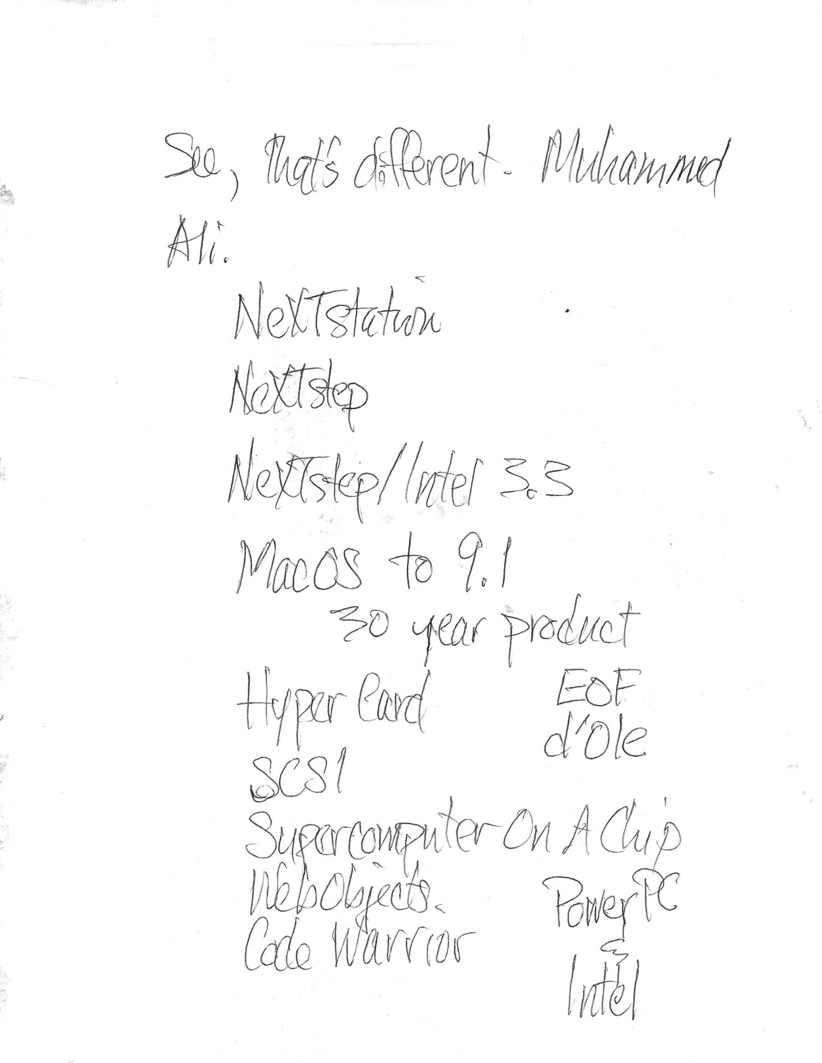 See, that's different. Muhammed
Ali.
NeXTstation
NeXTstep
NeXTstep/Intel 3.3
MacOS to 9.1
30 year product
HyperCard
EOF
d'Ole
SCSI
Supercomputer On A Chip
WebObjects.
PowerPC
Code Warrior
&
Intel